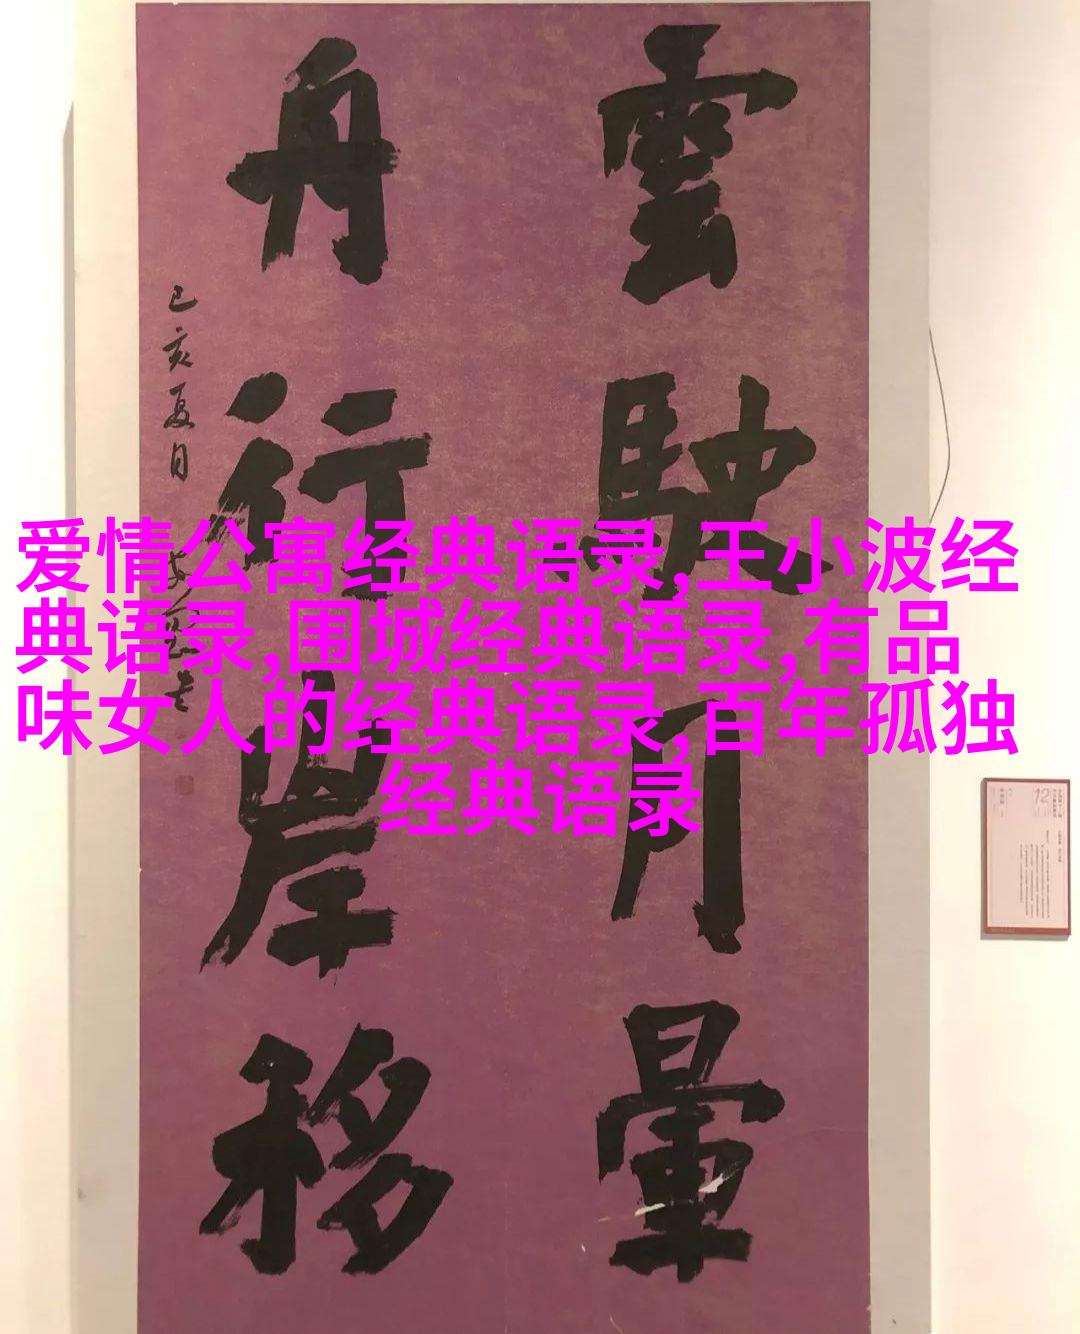 雲駛月暈
舟行岸移
己亥夏日
爱情公寓经典语录,王小波经
典语录,围城经典语录,有品
味女人的经典语录,百年孤独
经典语录
12